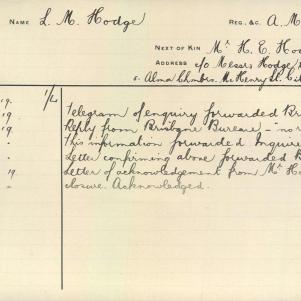 NAME L. M. Hodge REG. &C. A. M
NEXT OF KIN Mr H. E. Ho
ADDRESS c/o Messrs Hodge,
5. Alma Chmbrs. McHenry St. Cit
19. 1/4 Telegram of enquiry forwarded Br
19. Reply from Brisbane Bureau - no
19. This information forwarded Inquire
" Letter confirming above forwarded B
19. Letter of acknowledgement from Mr H
" closure. Acknowledged.